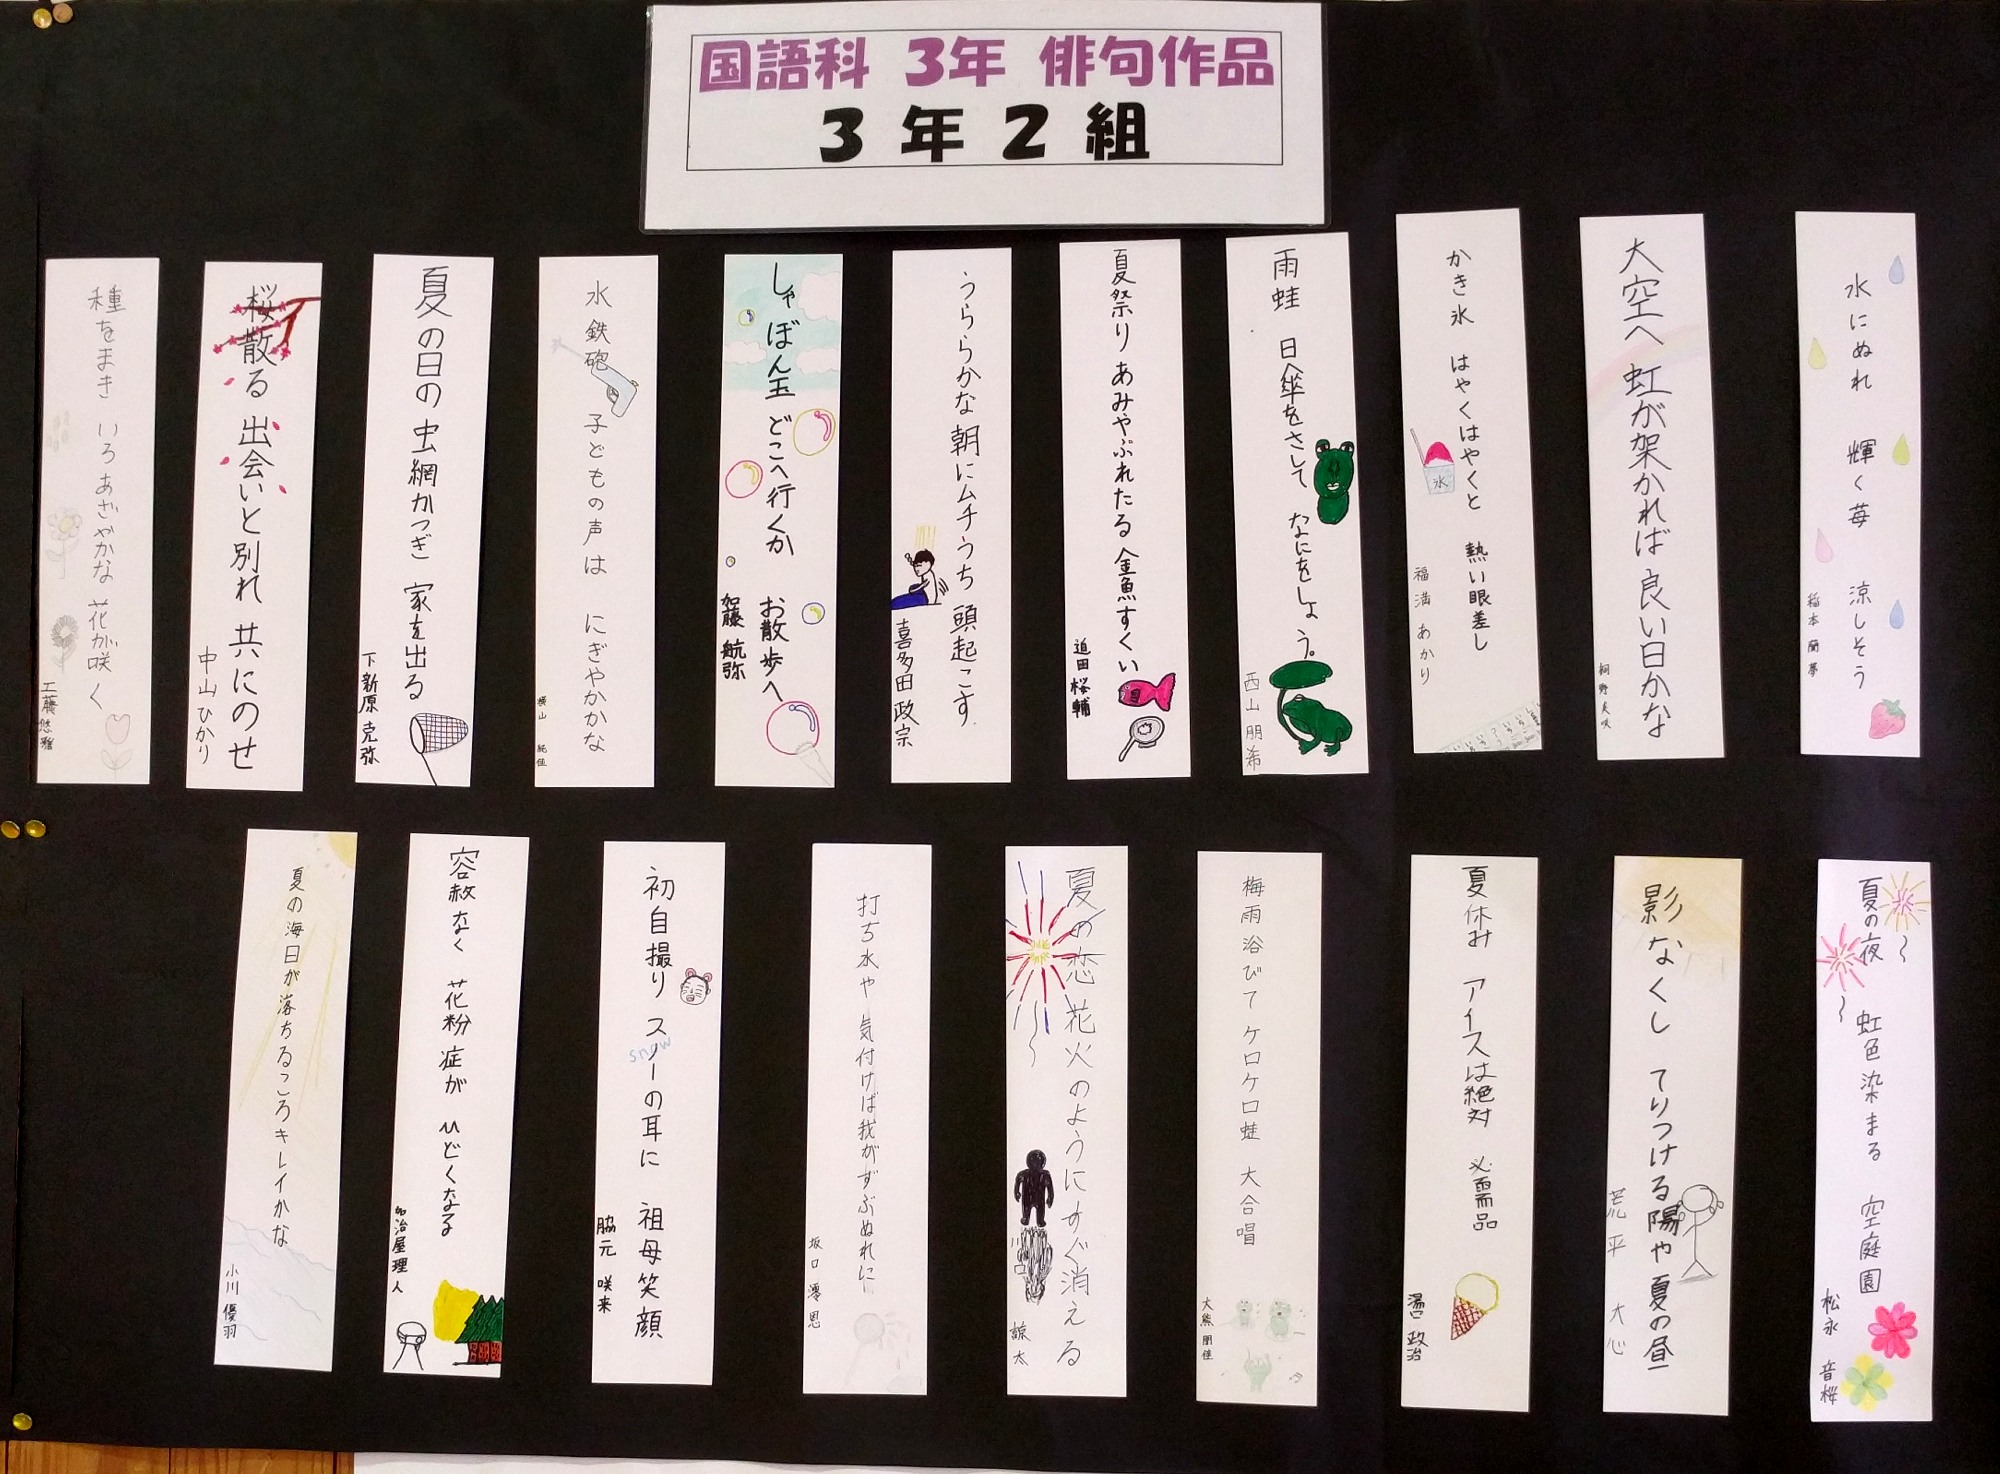 国語科 3年 俳句作品
3年2組
水にぬれ 輝く苺 涼しそう
稲本 蘭夢
大空へ 虹が架かれば 良い日かな
かき氷 はやくはやくと 熱い眼差し
福満 あかり
氷
雨蛙 日傘をさして なにをしよう。
西山 朋希
夏祭り あみやぶれたる 金魚すくい
迫田 桜輔
うららかな 朝にムチうち 頭起こす
喜多田 政宗
しゃぼん玉 どこへ行くか お散歩へ
加藤 航弥
水鉄砲 子どもの声は にぎやかかな
横山 純佳
夏の日の 虫網かつぎ 家を出る
下新原 克弥
桜散る 出会いと別れ 共にのせ
中山 ひかり
種をまき いろあざやかな 花が咲く
工藤 悠雅
夏の夜 虹色染まる 空庭園
松永 音桜
影なくし てりつける陽や 夏の昼
荒平 大心
夏休み アイスは絶対 必需品
湯口 政治
梅雨浴びて ケロケロケロ蛙 大合唱
大熊 朋佳
夏の恋 花火のように すぐ消える
諒太
打ち水や 気付けば我が ずぶぬれに
坂口 澪恩
初自撮り スノーの耳に 祖母笑顔
snow
脇元 咲来
容赦なく 花粉症が ひどくなる
加治屋 理人
夏の海 日が落ちるころ キレイかな
小川 優羽